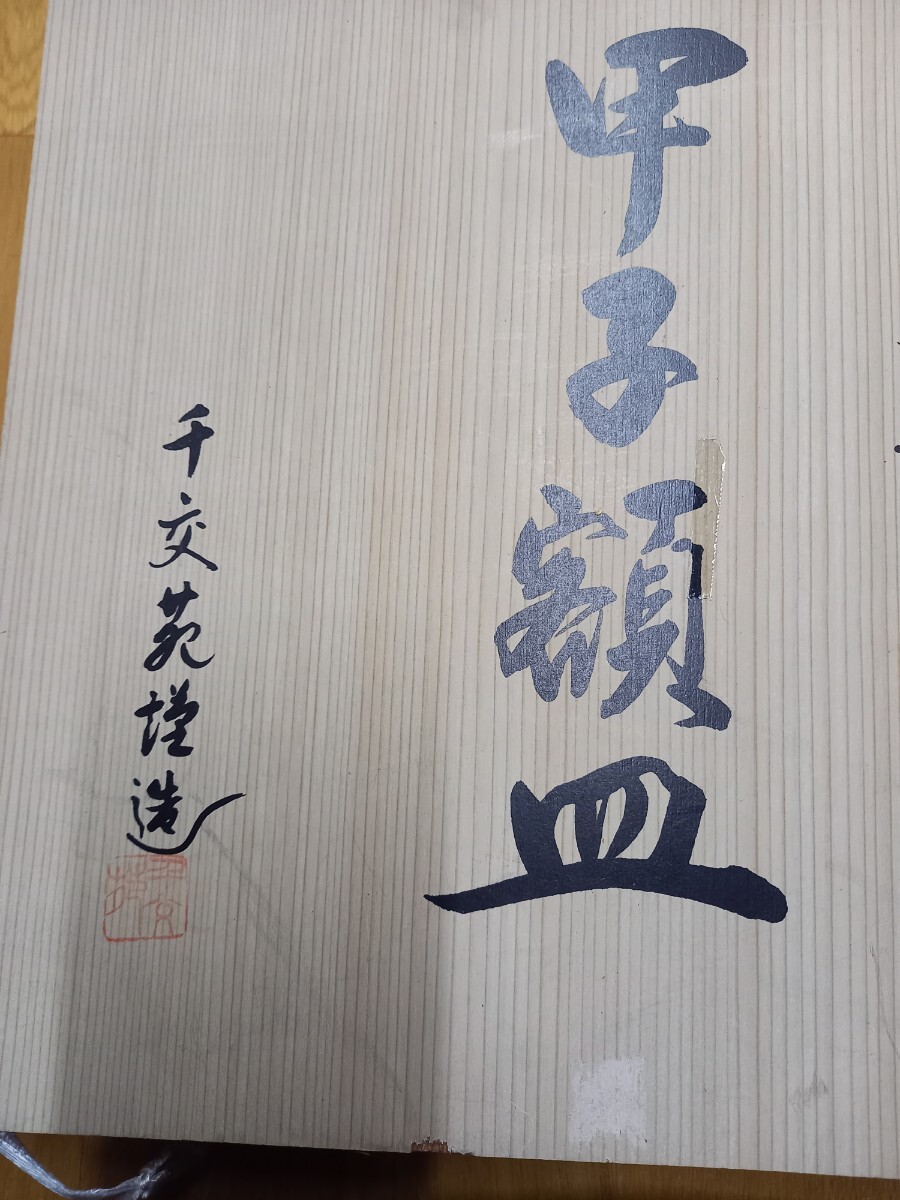 甲子額皿
千交苑謹造